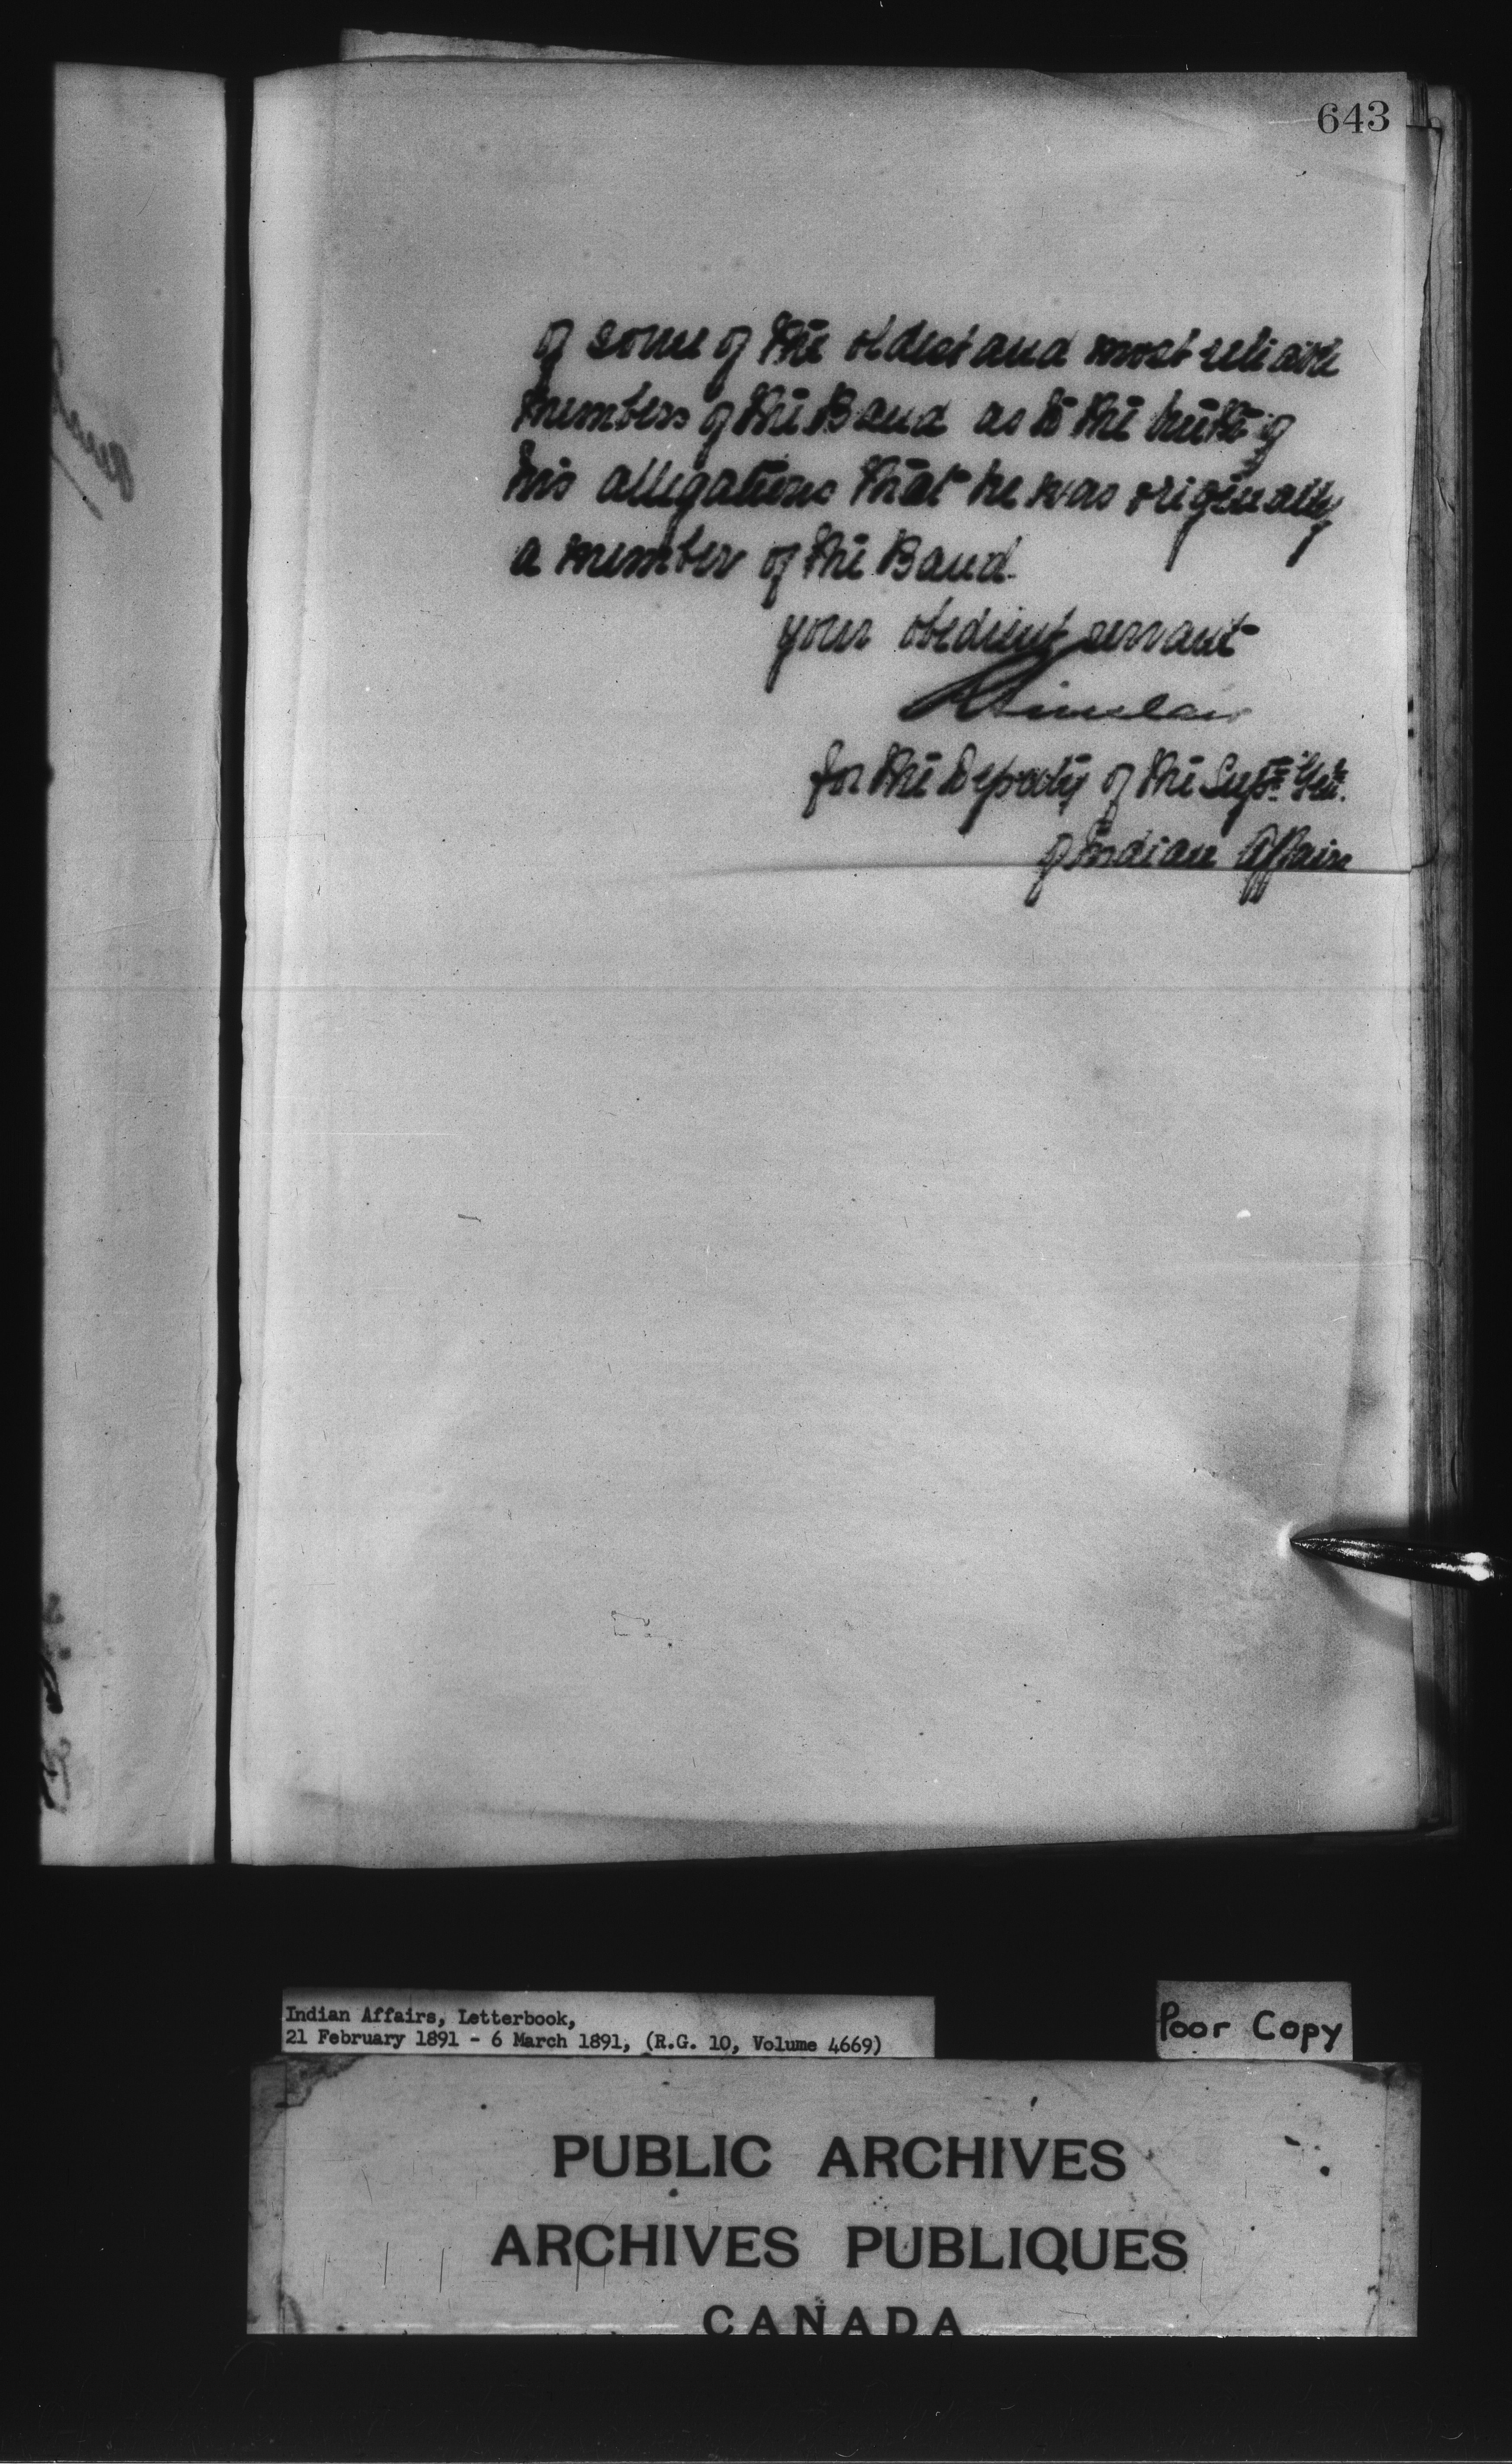 643
of some of the oldest and most reliable
members of the Band as to the truth of
his allegations that he was originally
a member of the Band.
your obedient servant
R Sinclair
for the Deputy of the Supt. Gen.
of Indian Affairs
Indian Affairs, Letterbook,
21 February 1891 - 6 March 1891, (R.G. 10, Volume 4669)
Poor Copy
PUBLIC ARCHIVES
ARCHIVES PUBLIQUES
CANADA